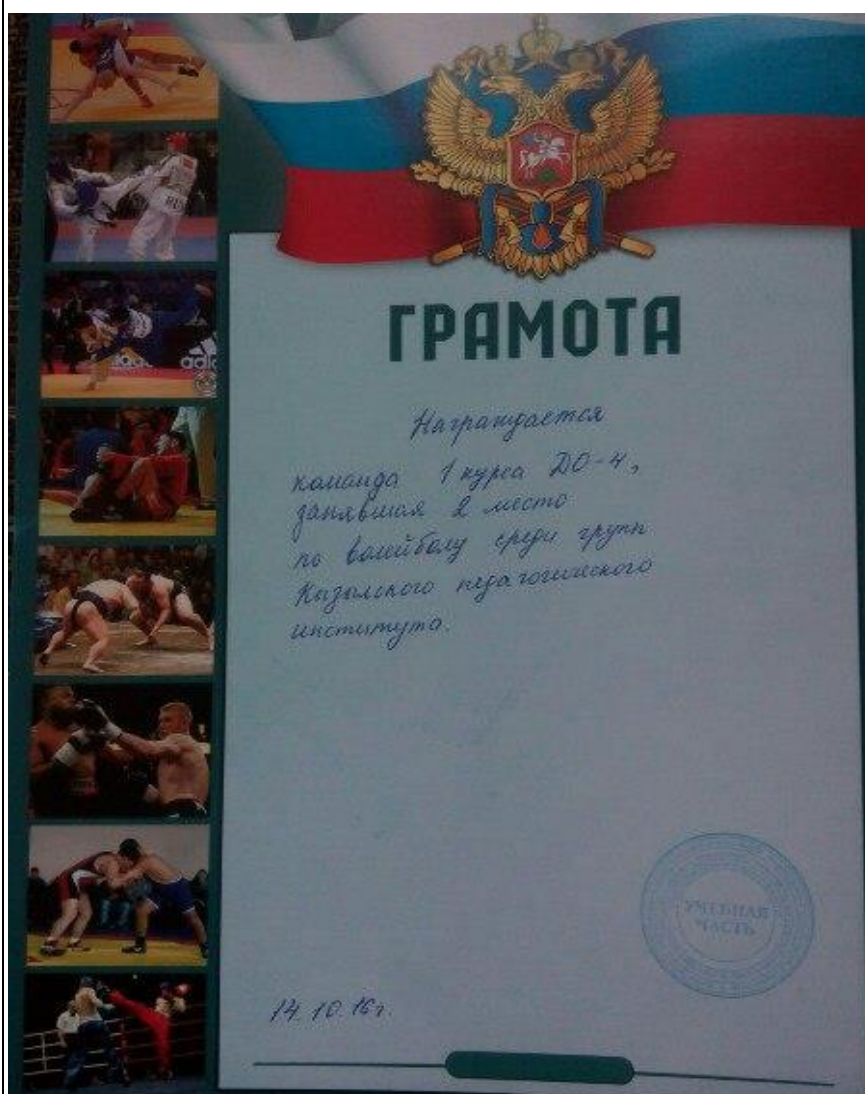 ГРАМОТА
Награждается
команда 1 курса ДО-4,
занявшая 2 место
по волейболу среди групп
Кызылского педагогического
института.
УЧЕБНАЯ
ЧАСТЬ
14.10.16г.